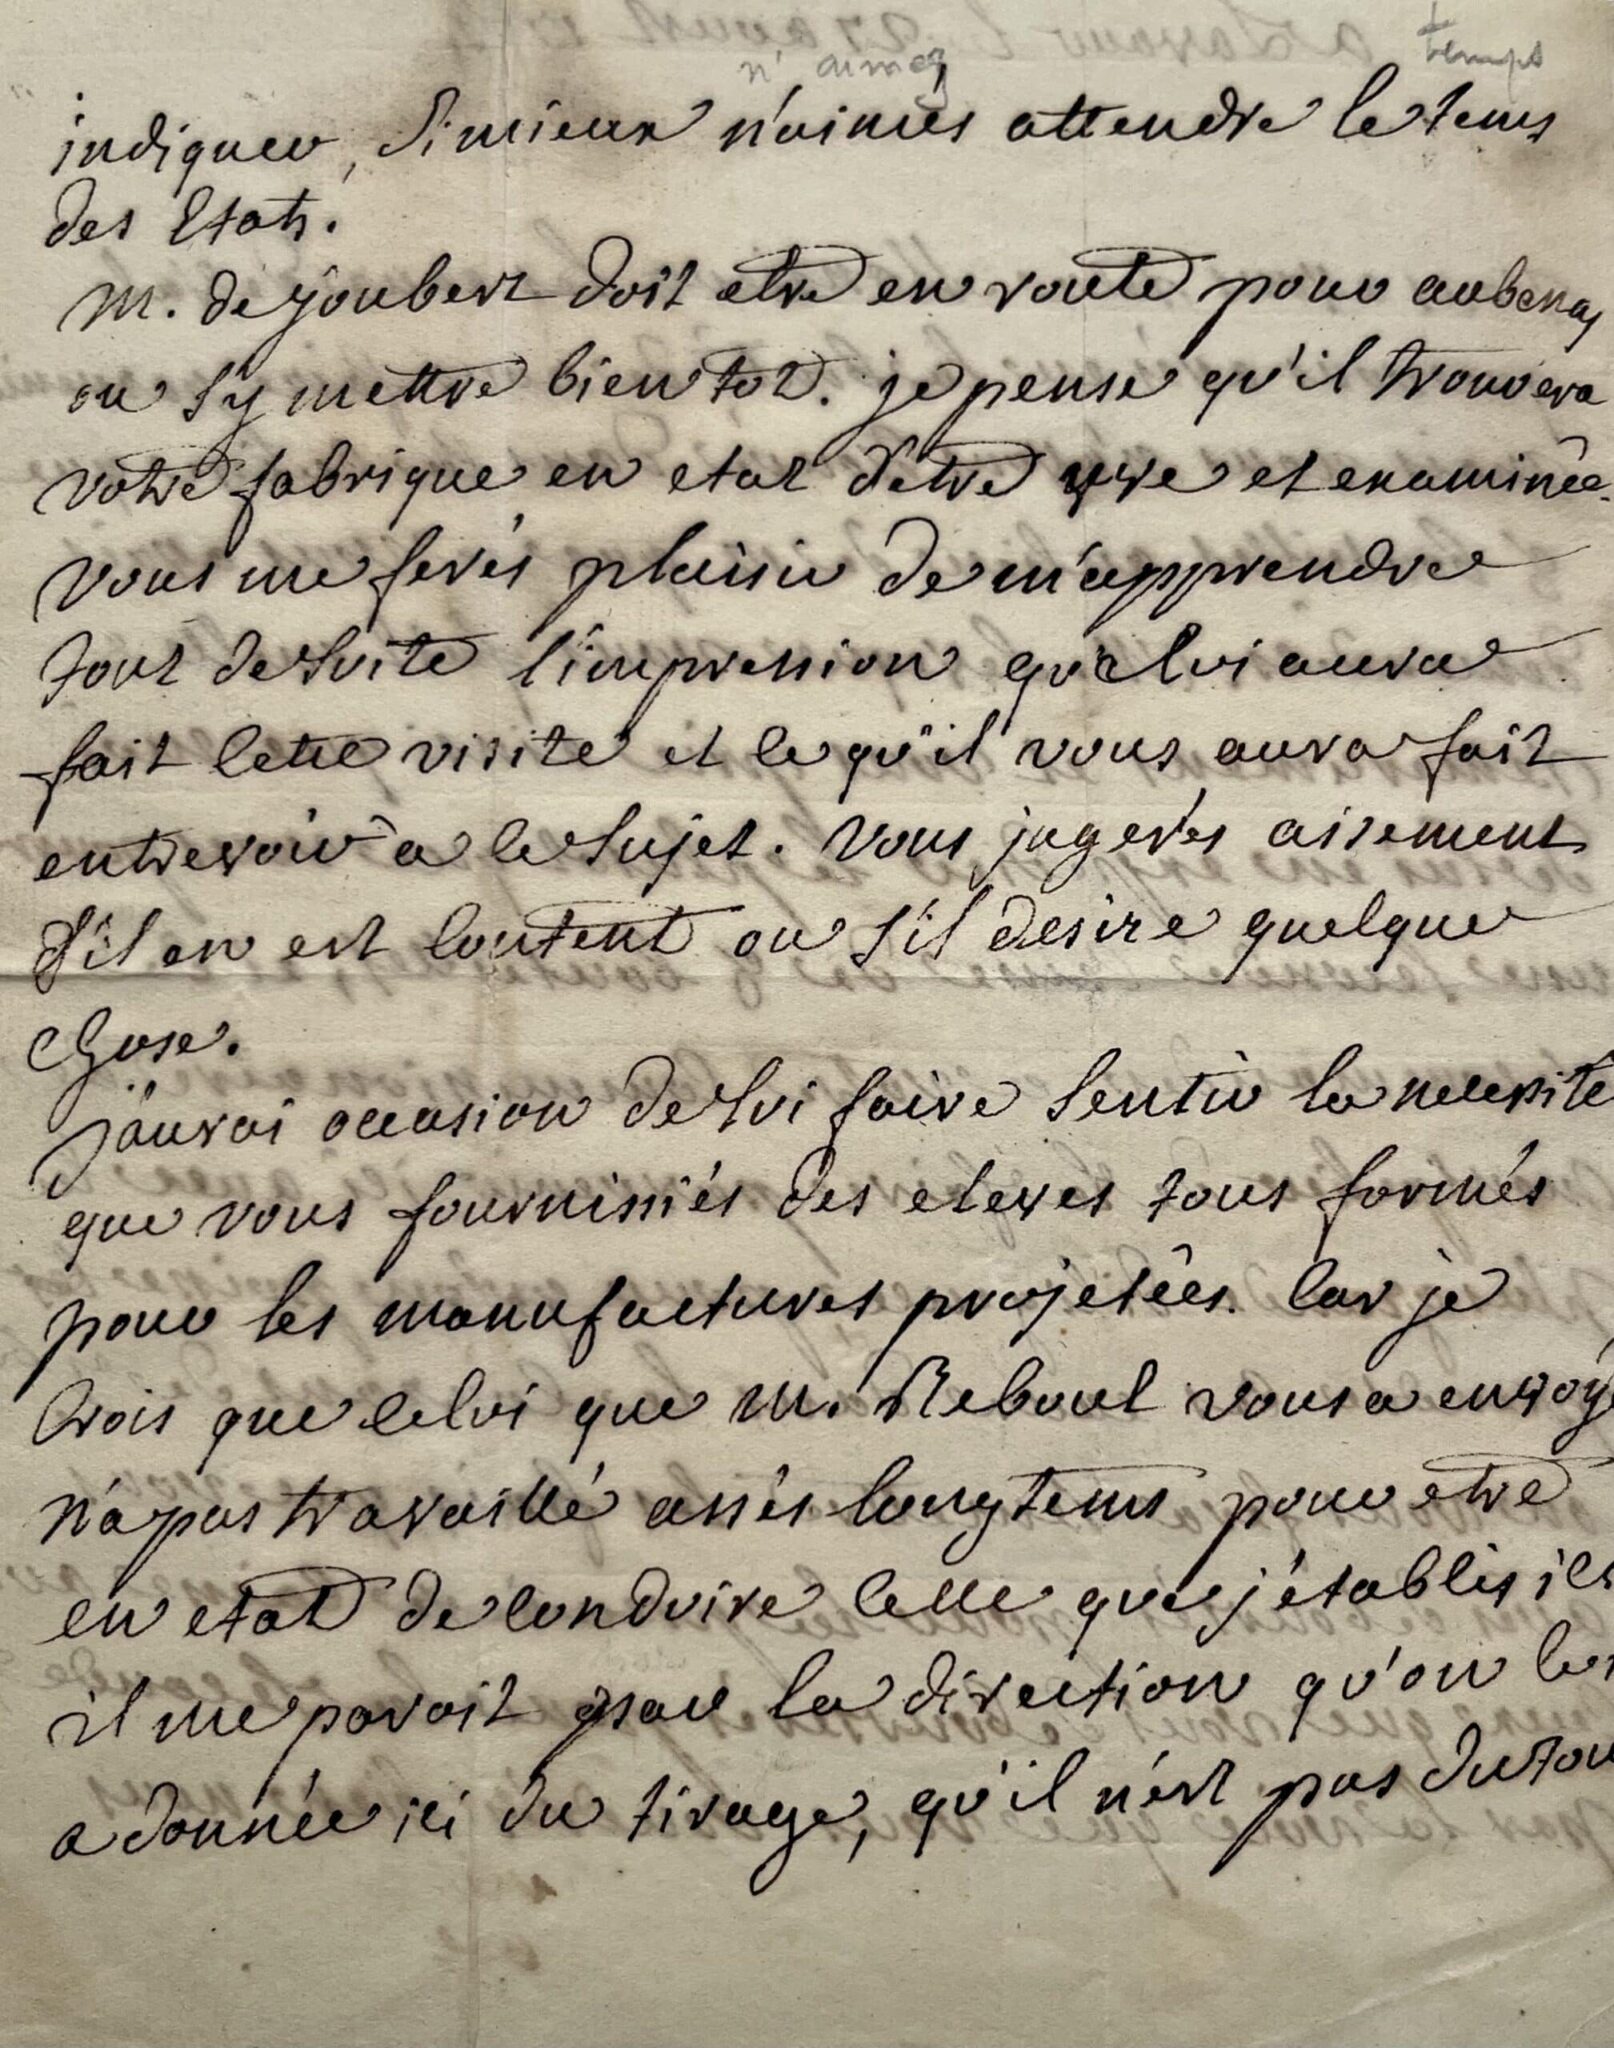 n'aimez temps
indiquer, si mieux n'aimés attendre le tems
des Etats.
M. de joubert doit etre en route pour aubenas
ou s'y mettre bientot. je pense qu'il trouvera
votre fabrique en etat d'etre vue et examinée.
vous me ferés plaisir de m'apprendre
tout de suite l'impression que lui aura
fait cette visite et ce qu'il vous aura fait
entrevoir a ce sujet. vous jugerés aisement
s'il en est content ou s'il desire quelque
chose.
j'aurai occasion de lui faire sentir la necessité
que vous fournissiés des eleves tous formés
pour les manufactures projetées. car je
crois que celui que M. Reboul vous a envoyé
n'a pas travaillé assés longtems pour etre
en etat de conduire celle que j'etablis ici
il me paroit par la direction qu'on
a donnée ici du tirage, qu'il n'est pas du tou